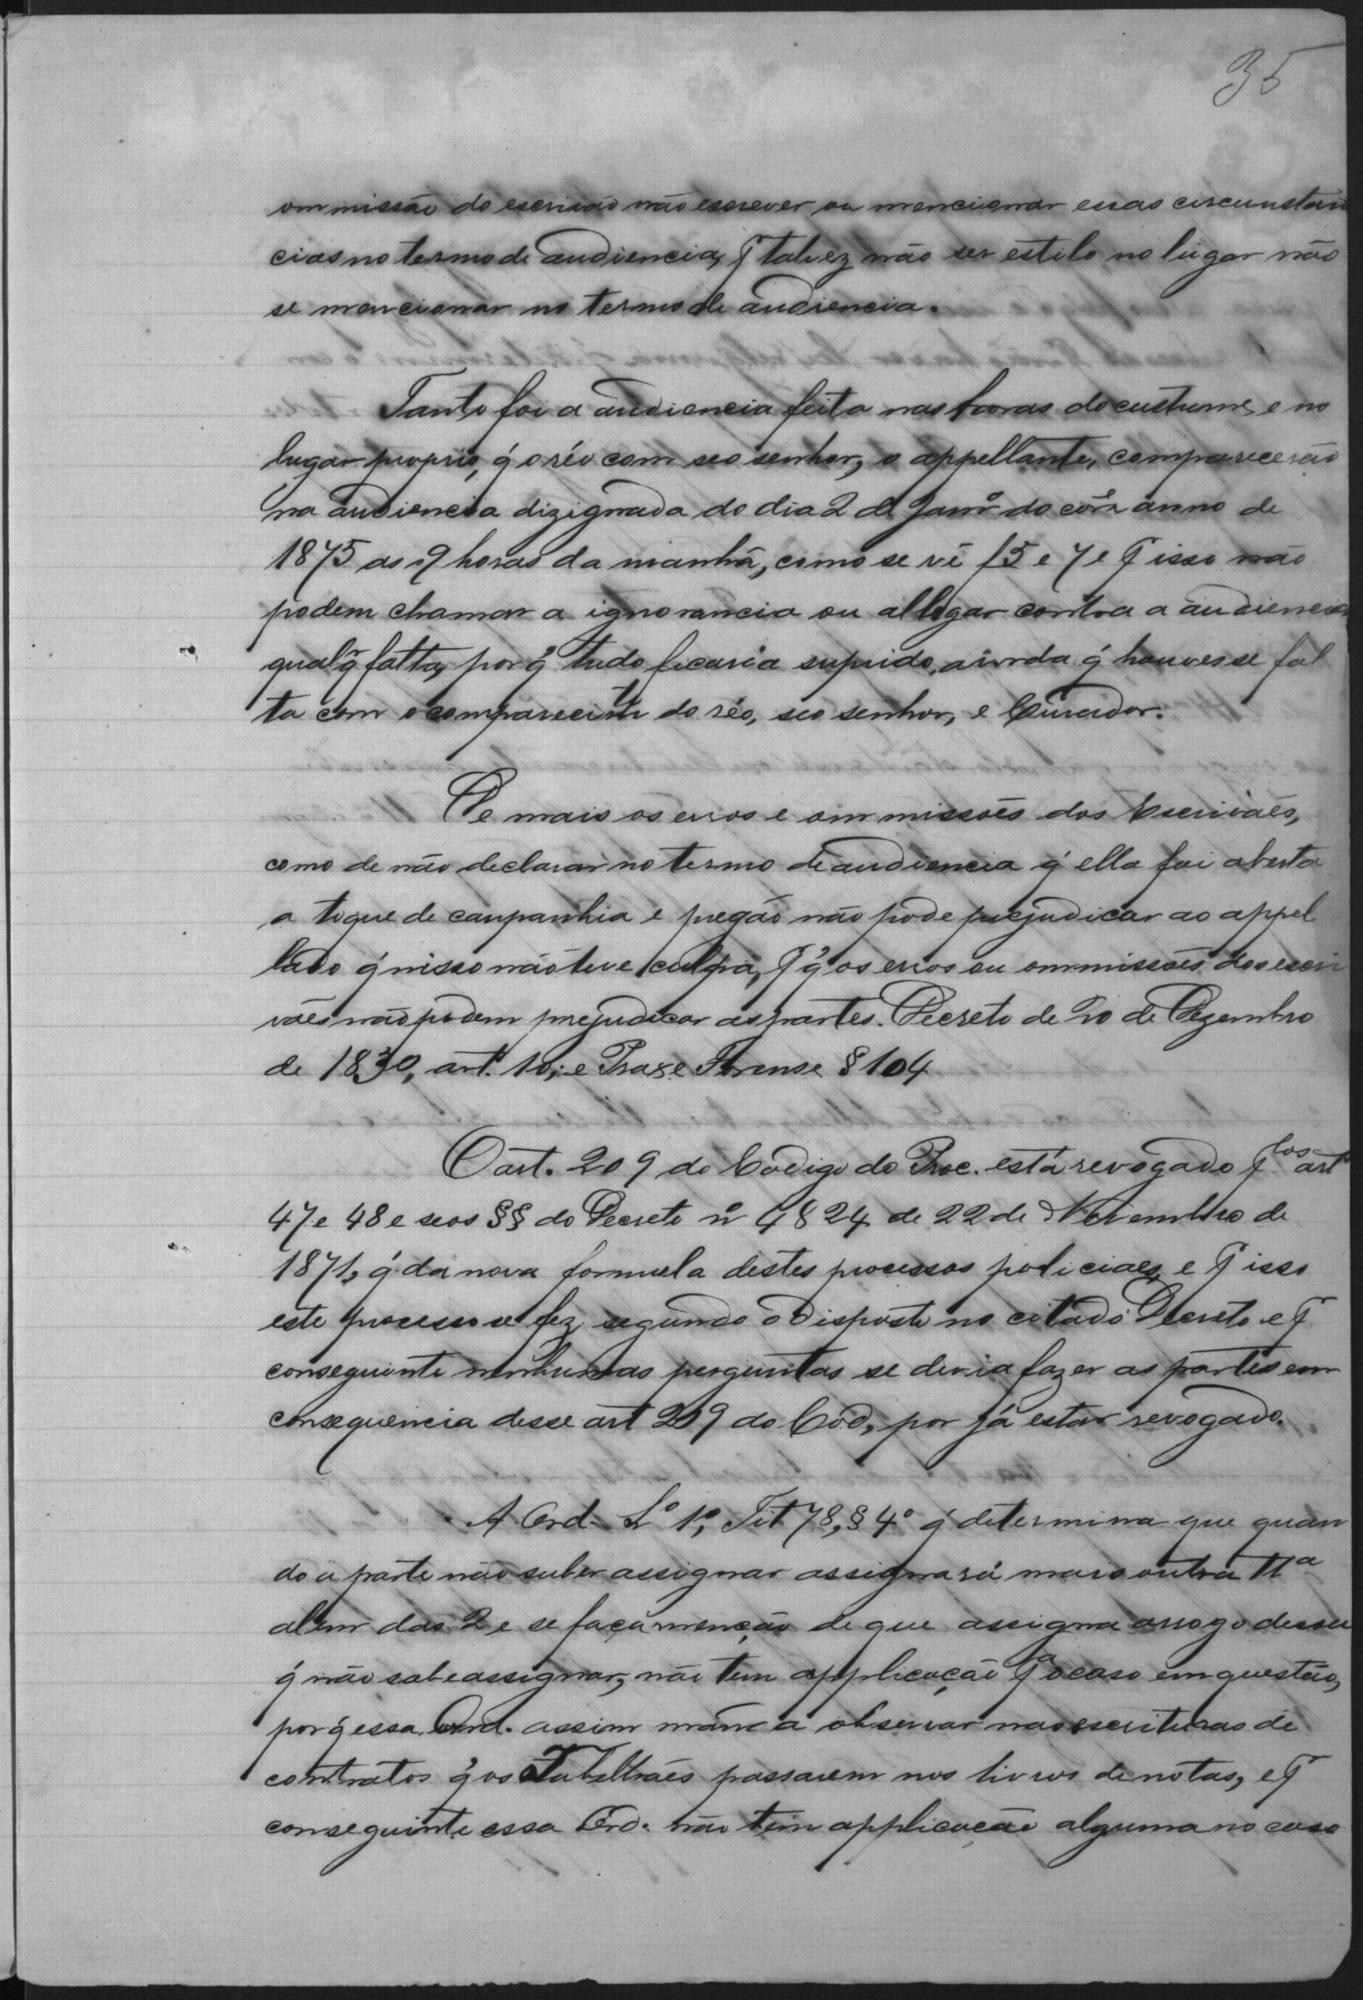 35
ommissão do escrivão não escrever ou mencionar essas circumstan
cias no termo de audiencia, p talvez não ser estilo no lugar não
se mencionar no termo de audiencia.
Tanto foi a audiencia feita nas horas do custume, e no
lugar proprio, q̃ o réo com seo senhor, o appellante, comparecerão
na audiencia dizignada do dia 2 de Janrº do corre anno de
1875 as 9 horas da manhã, como se vê f 5 e 7 e p isso não
podem chamar a ignorancia ou allegar contra a audiencia
qualq̃ falta, por q̃ tudo ficaria suprido, ainda q̃ houvesse fal
ta com o comparecimto do réo, seo senhor, e Curador.
De mais os erros e ommissões dos Escrivães,
como de não declarar no termo de audiencia q̃ ella foi aberta
a toque de campanhia e pregão não pode prejudicar ao appel
lado q̃ nisso não teve culpa, p q̃ os erros ou ommissões dos escri
vães não podem prejudicar as partes. Decreto de 20 de Dezembro
de 1830, art. 10; e Praxe Forense § 104
O art. 209 do Codigo do Proc. está revogado plos arts
47 e 48 e seos §§ do Decreto nº 4824 de 22 de Novembro de
1871, q̃ da nova formula destes processos policiaes, e p isso
este processo se fez segundo o disposto no citado Decreto e p
conseguinte nenhumas perguntas se devia fazer as partes em
consequencia desse art 209 do Cod, por já estar revogado.
A Ord. Lº 1º, Tit 78, § 4º q̃ determina que quan
do a parte não suber assignar assignará mais outra ttª
alem das 2 e se faça menção de que assigna a rogo dessa
q̃ não sabe assignar, não tem applicação pª o caso em questão,
por q̃ essa Ord. assim manda observar nas escrituras de
contratos q̃ os Tabelliães passarem nos livros de notas, e p
conseguinte essa Ord. não tem applicação alguma no caso